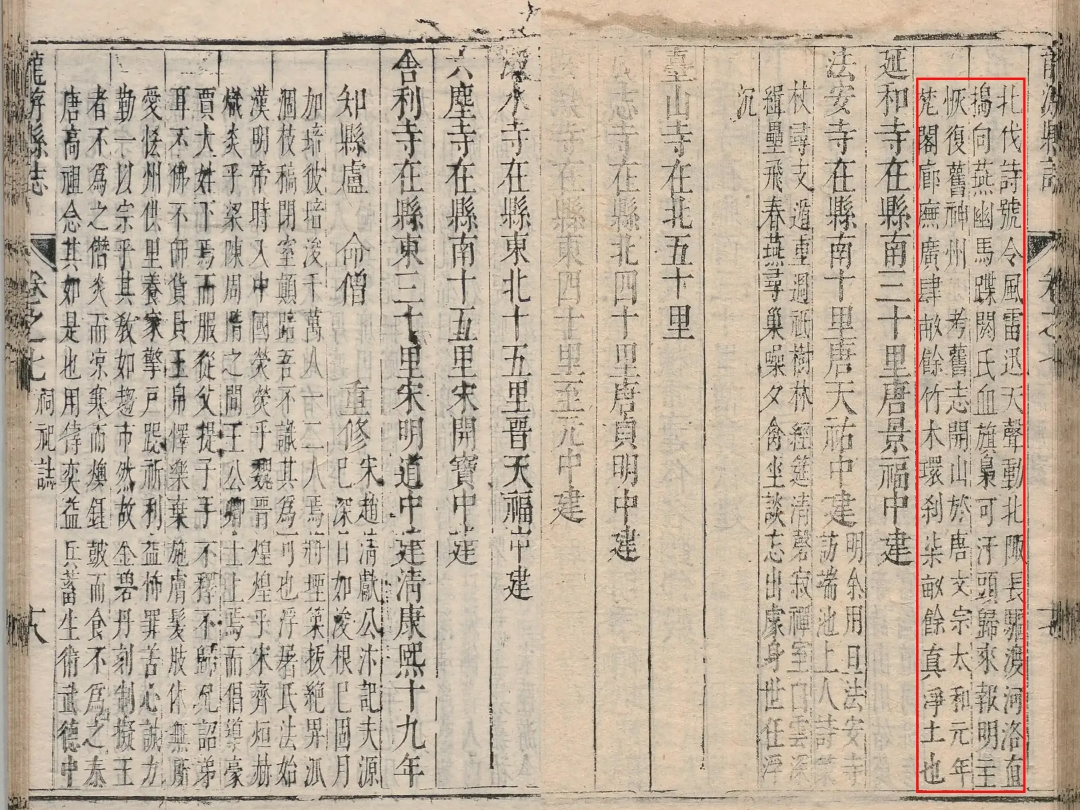 北伐詩號令風雷迅天聲動北陬長驅渡河洛直
搗向燕幽馬蹀閼氏血旗梟可汗頭歸來報明主
恢復舊神州 考舊志開山於唐文宗太和元年
梵閣廊廡廣肆畝餘竹木環刹柒畝餘真淨土也
延和寺在縣南三十里唐景福中建
法安寺在縣南十里唐天祐中建
明余用日法安寺
訪端池上人詩
杖尋支遁重過祇樹林經筵清磬寂禪室白雲深
緝壘飛春燕尋巢噪夕禽坐談忘出處身世任浮
沉
臺山寺在北五十里
志寺在縣北四十里唐貞明中建
寺在縣東四十里至元中建
水寺在縣東北十五里晉天福中建
六塵寺在縣南十五里宋開寶中建
舍利寺在縣東三十里宋明道中建清康熙十九年
知縣盧 命僧 重修
宋趙清獻公汴記夫源
已深 自如浚根已固月
加培彼培浚千萬人有一二人焉將堙築扳絕畀派
涸枝槁閉室顛踣吾不識其為可也浮屠氏法始
漢明帝時入中國熒熒乎魏晉煌煌乎宋齊烜赫
熾炎乎梁陳周隋之間王公卿士上焉而倡導豪
賈大姓下焉而服從父提子手不釋不歸兄詔弟
耳不佛不師貨貝玉帛懌樂棄施膚髮肢體無所
愛怪州供里養家擎戶跽祈利益怖罪苦心誠力
勤一以宗乎其教如趨市然故金碧丹刻制擬王
者不為之僭炎而凉寒而燠鐘鼓而食不為之泰
唐高祖念其如是也用傅奕益兵蓄生術武德中
龍游縣志
卷之七
祠祀誌